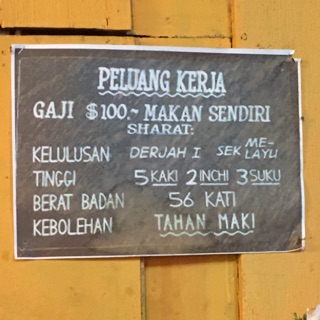 PELUANG KERJA
GAJI $100.~ MAKAN SENDIRI
SHARAT:
KELULUSAN DERJAH I SEK ME-LAYU
TINGGI 5 KAKI 2 INCHI 3 SUKU
BERAT BADAN 56 KATI
KEBOLEHAN TAHAN MAKI